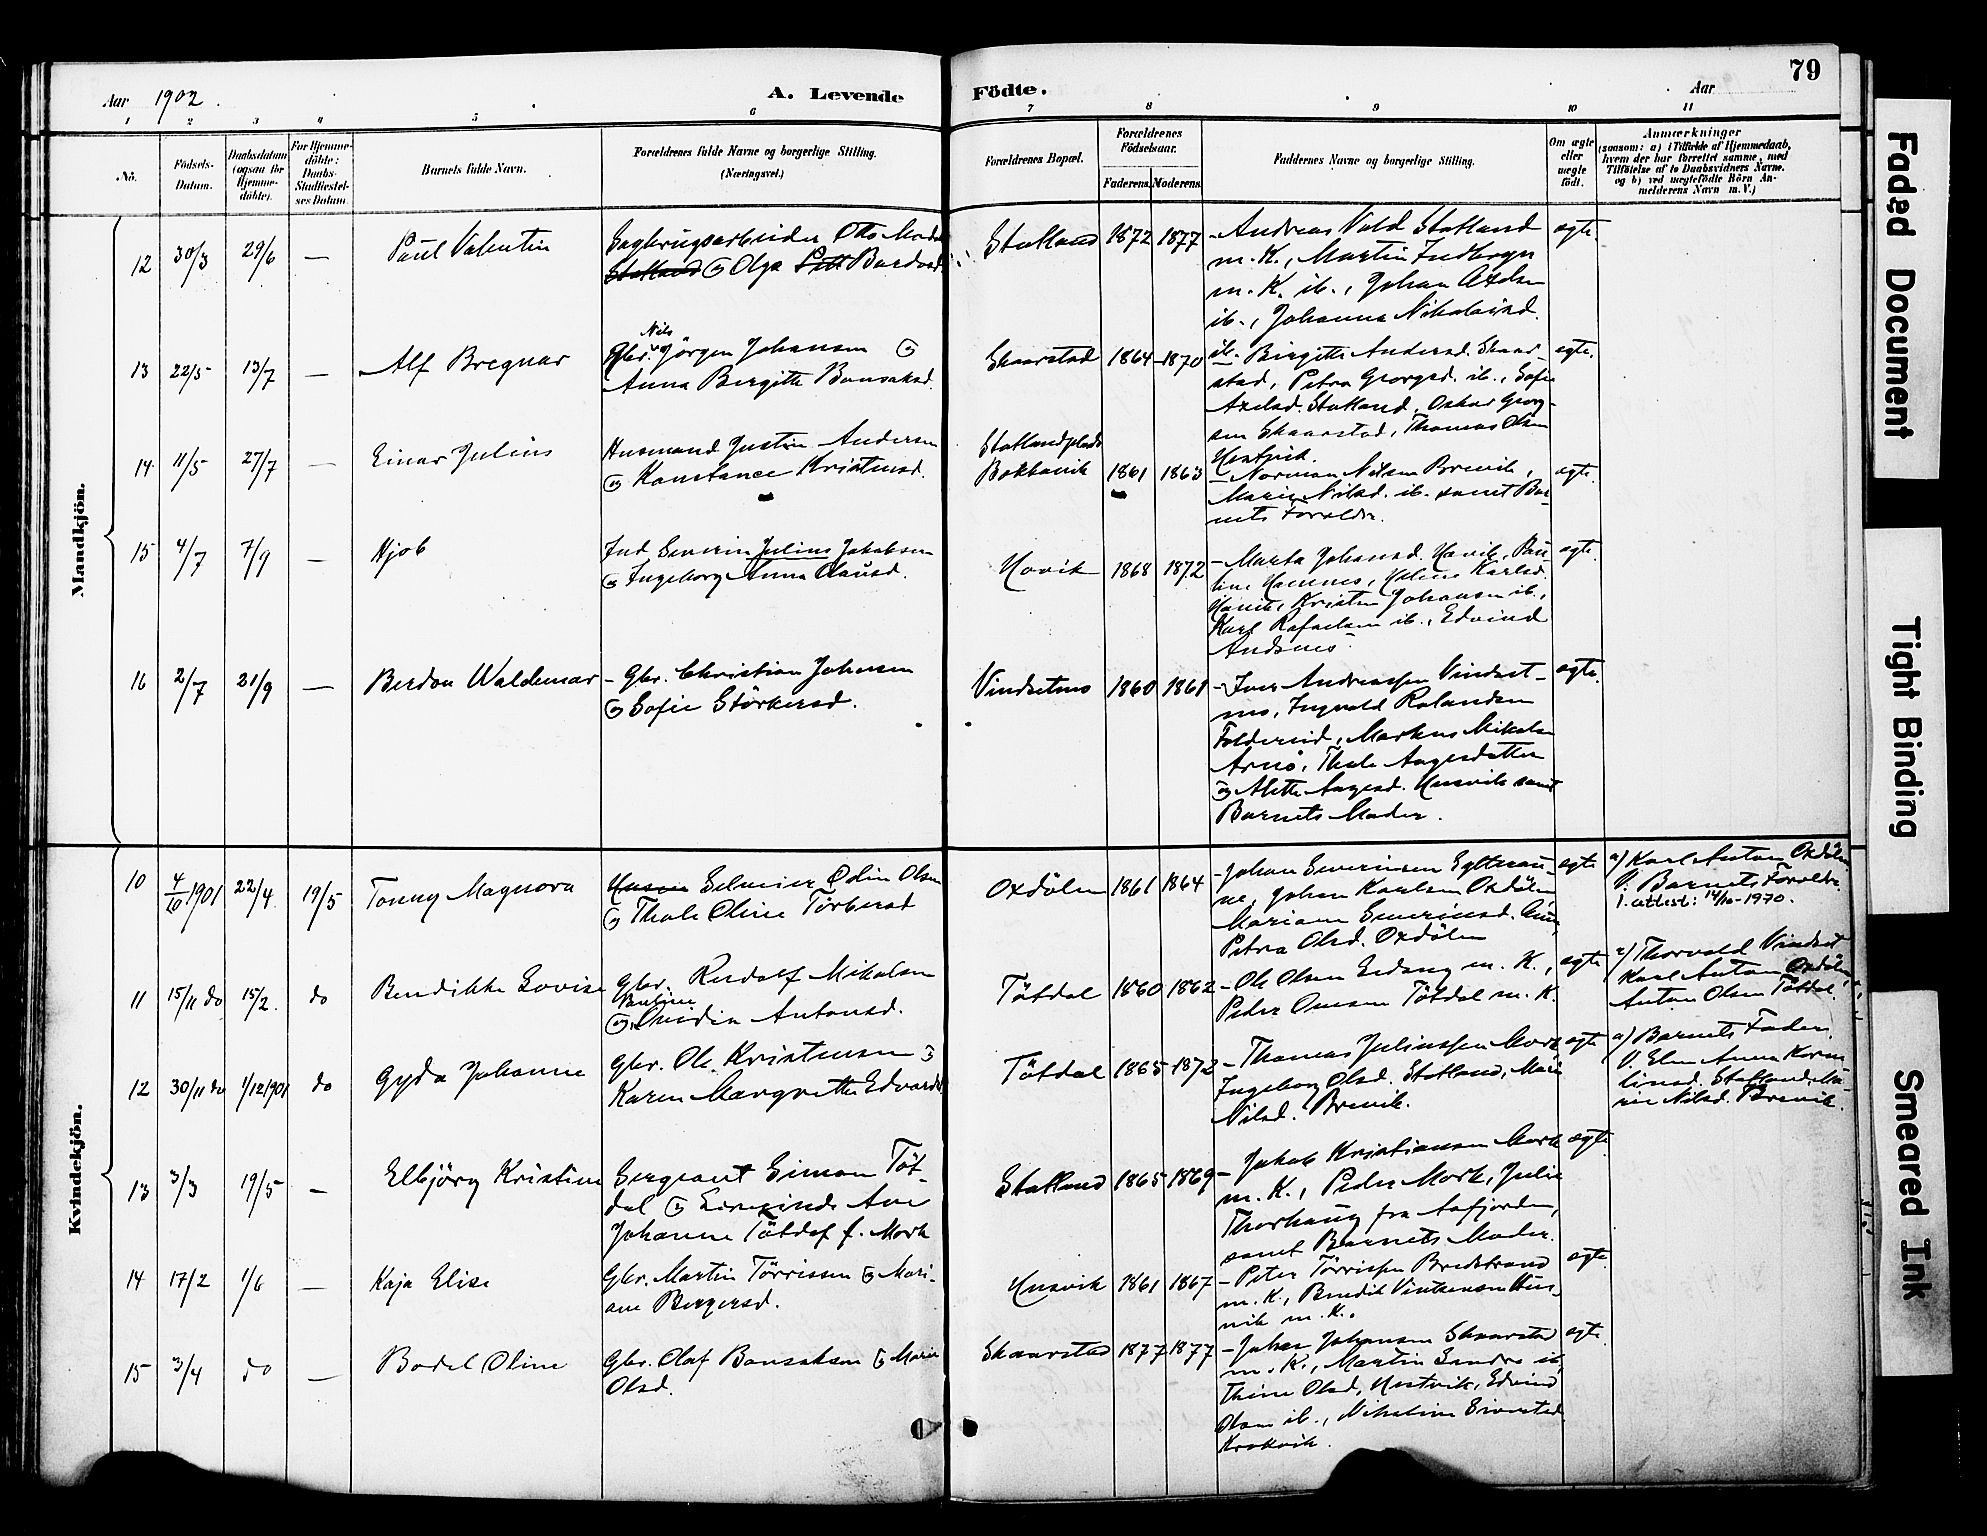 79
Aar 1902.
A. Levende
Födte.
Aar
1 2 3 4 5 6 7 8 9 10 11
No.
Födsels-
Datum.
Daabsdatum
(ogsaa for
Hjemme-
döbte).
For Hjemme-
döbte:
Daabs-
Stadfæstel-
ses Datum.
Barnets fulde Navn.
Forældrenes fulde Navne og borgerlige Stilling.
(Næringsvei.)
Forældrenes Bopæl.
Forældrenes
Födselsaar.
Faderens. Moderens.
Faddernes Navne og borgerlige Stilling.
Om ægte
eller
uægte
födt.
Anmærkninger
(saasom: a) i Tilfælde af Hjemmedaab,
hvem der har forrettet samme, med
Tilföielse af to Daabsvidners Navne.
og b) ved uægtefödte Börn An-
melderens Navn m. V.)
Mandkjön.
12 30/3 29/6 — Paul Valentin
Sagbrugsarbeider Otto
Statland og Olga
Statland 1872 1877
- Andreas Vold Statland
m. K., Martin
m. K. ib., Johan Axelsen
ib., Johanna
ægte
13 22/5 13/7 — Alf Bregnar
Nils
Gbr. Jörgen Johansen og
Anna Birgitte Bonsaksd.
Skaarstad 1864 1870
ib. Birgitte Andersd. Skaar-
stad, Petra Georgsd. ib., Sofie
Axelsd. Statland, Oskar Georg-
sen Skaarstad, Thomas Olsen
ægte.
14 11/5 27/7 — Einar Julius
Husmand Justin Andersen
og Konstance Kristensd.
Statlandplads
1861 1863
- Norman Nilsen Brevik,
Marie Nilsd. ib. samt Bar-
nets Forældre.
ægte.
15 4/7 7/9 — Hjob
Ind. Severin Julius Jakobsen
og Ingeborg Anna Olausd.
Hovik 1868 1872
- Marta Johansd. Hovik,
Kristen Johansen ib.,
Karl Rafaelsen ib., Edvind
ægte.
16 2/7 21/9 — Berdon Waldemar
- Gbr. Christian Johnsen
og Sofie Störkersd.
Vindsetmo 1860 1861
- Iver Andreassen Vindset-
mo, Ingvald Rolandsen
Foldereid, Markus Mikalsen
Arnö, Thale Aagesdatter
og Alette Aagesd. Husvik samt
Barnets Moder.
ægte.
Kvindekjön.
10 4/10 1901 22/4 19/5 Tonny Magnora
Selmier Odin Olsen
og Thale Oline Torbersd
Oxdölen 1861 1864
- Johan Severinsen
Johan Karlsen Oxdölen
Mariane Severinsd.
Petra Olsd. Oxdölen
ægte
a) Karl Anton Oxdölen
V. Barnets Forældre.
1. attest: 14/10-1970.
11 15/11 do 15/2. do Bendikke Lovise
Gbr. Rudolf Mikalsen
Pauline
og Ovidia Antonsd.
Tötdal 1860 1862
- Ole Olsen m. K.,
Peder Tötdal m. K.
ægte
a) Thorvald Vindset
Karl Anton Oxdölen,
Anton Olsen Tötdal.
12 30/11 do 1/12 1901 do Gyda Johanne
Gbr. Ole Kristensen og
Karen Margrethe Edvardsd
Tötdal 1865 1872
- Thomas Juliussen Mork
Ingeborg Olsd. Statland, Marie
Nilsd. Brevik.
ægte
a) Barnets Fader.
V. Elen Anna
Statland, Ma-
rie Nilsd. Brevik.
13 3/3 19/5 — Elbjörg Kristine
Sergeant Simon Töt-
dal og
Johanne Tötdal f. Mork
Statland 1865 1869
- Jakob Kristiansen Mork
m. K., Peder Mork, Julie
Thorhaug fra Aafjorden,
samt Barnets Moder.
ægte.
14 17/2 1/6 — Kaja Elise
Gbr. Martin Törrissen og Mari-
ane Bergersd.
Husvik 1861 1867
- Peter Törrissen Bredstrand
m. K., Bendik Vintsensen Hus-
vik m. K.
ægte.
15 3/4 do — Bodel Oline
Gbr. Olaf Bonsaksen og Marie
Olsd.
Skaarstad 1877 1877
- Johan Johansen Skaarstad
m. K., Martin Sandre ib.
Thine Olsd, Hestvik, Edvind
Olsen ib., Nikoline Sivertsd
Krokvik.
ægte.
Faded Document
Tight Binding
Smeared Ink